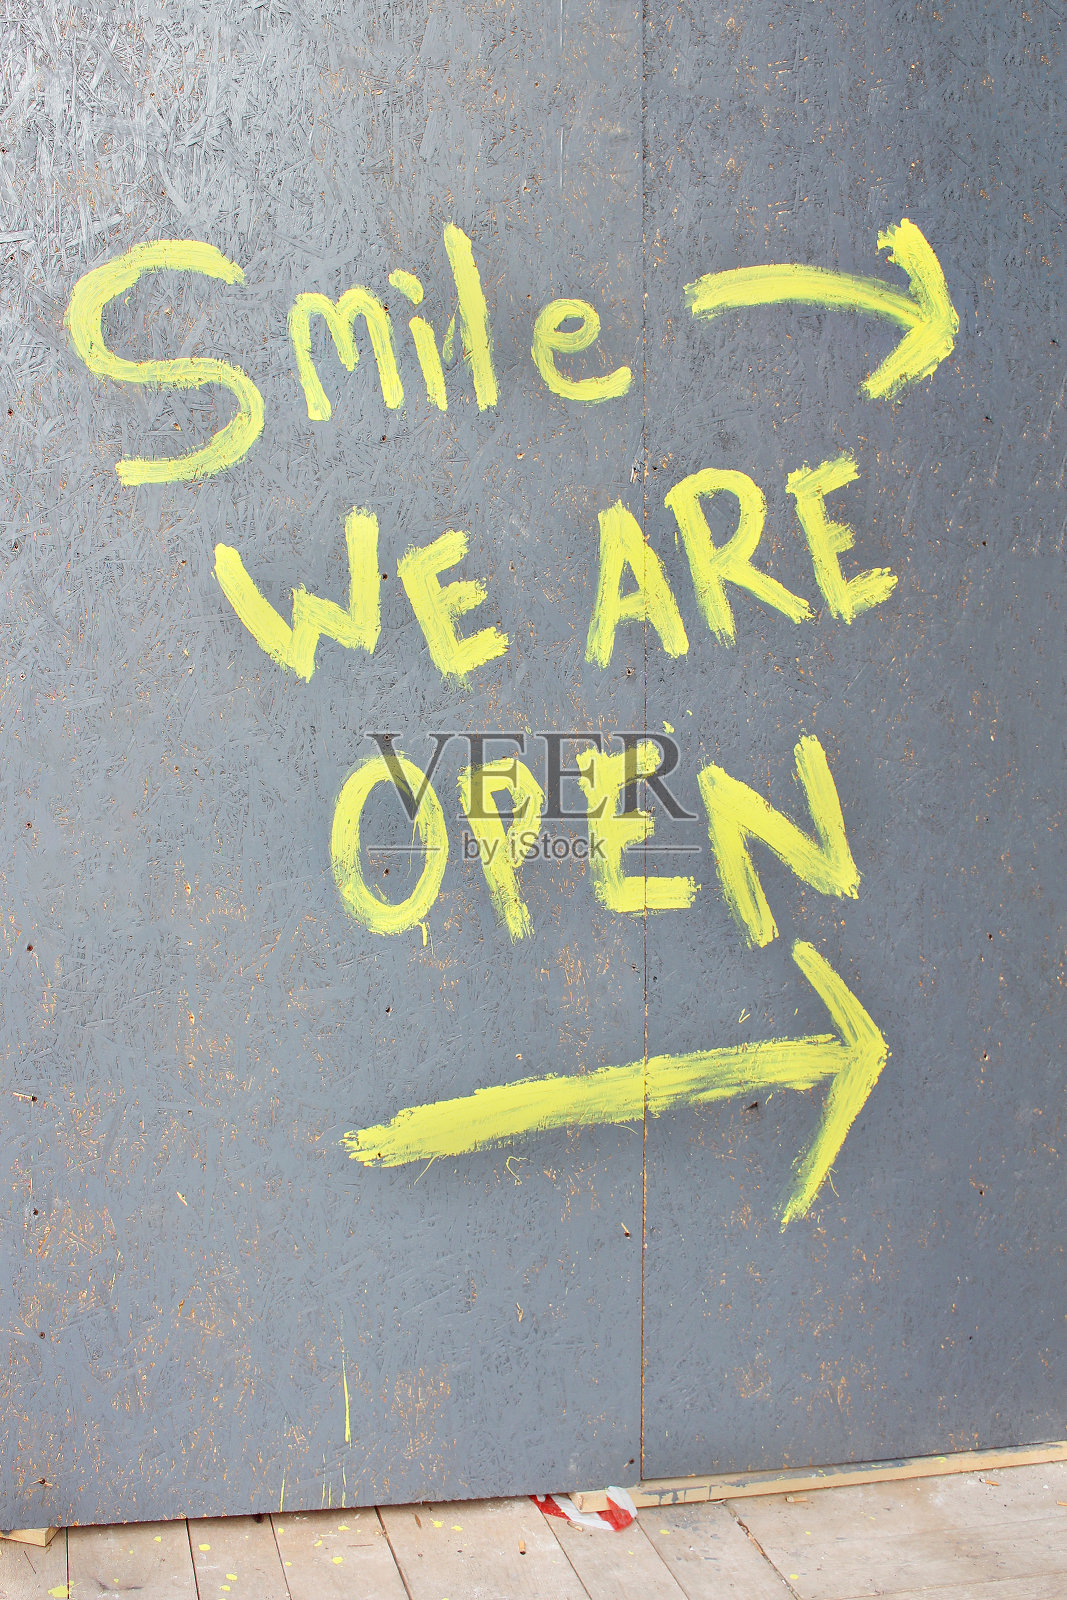 Smile →
WE ARE
OPEN
VEER
by iStock
→